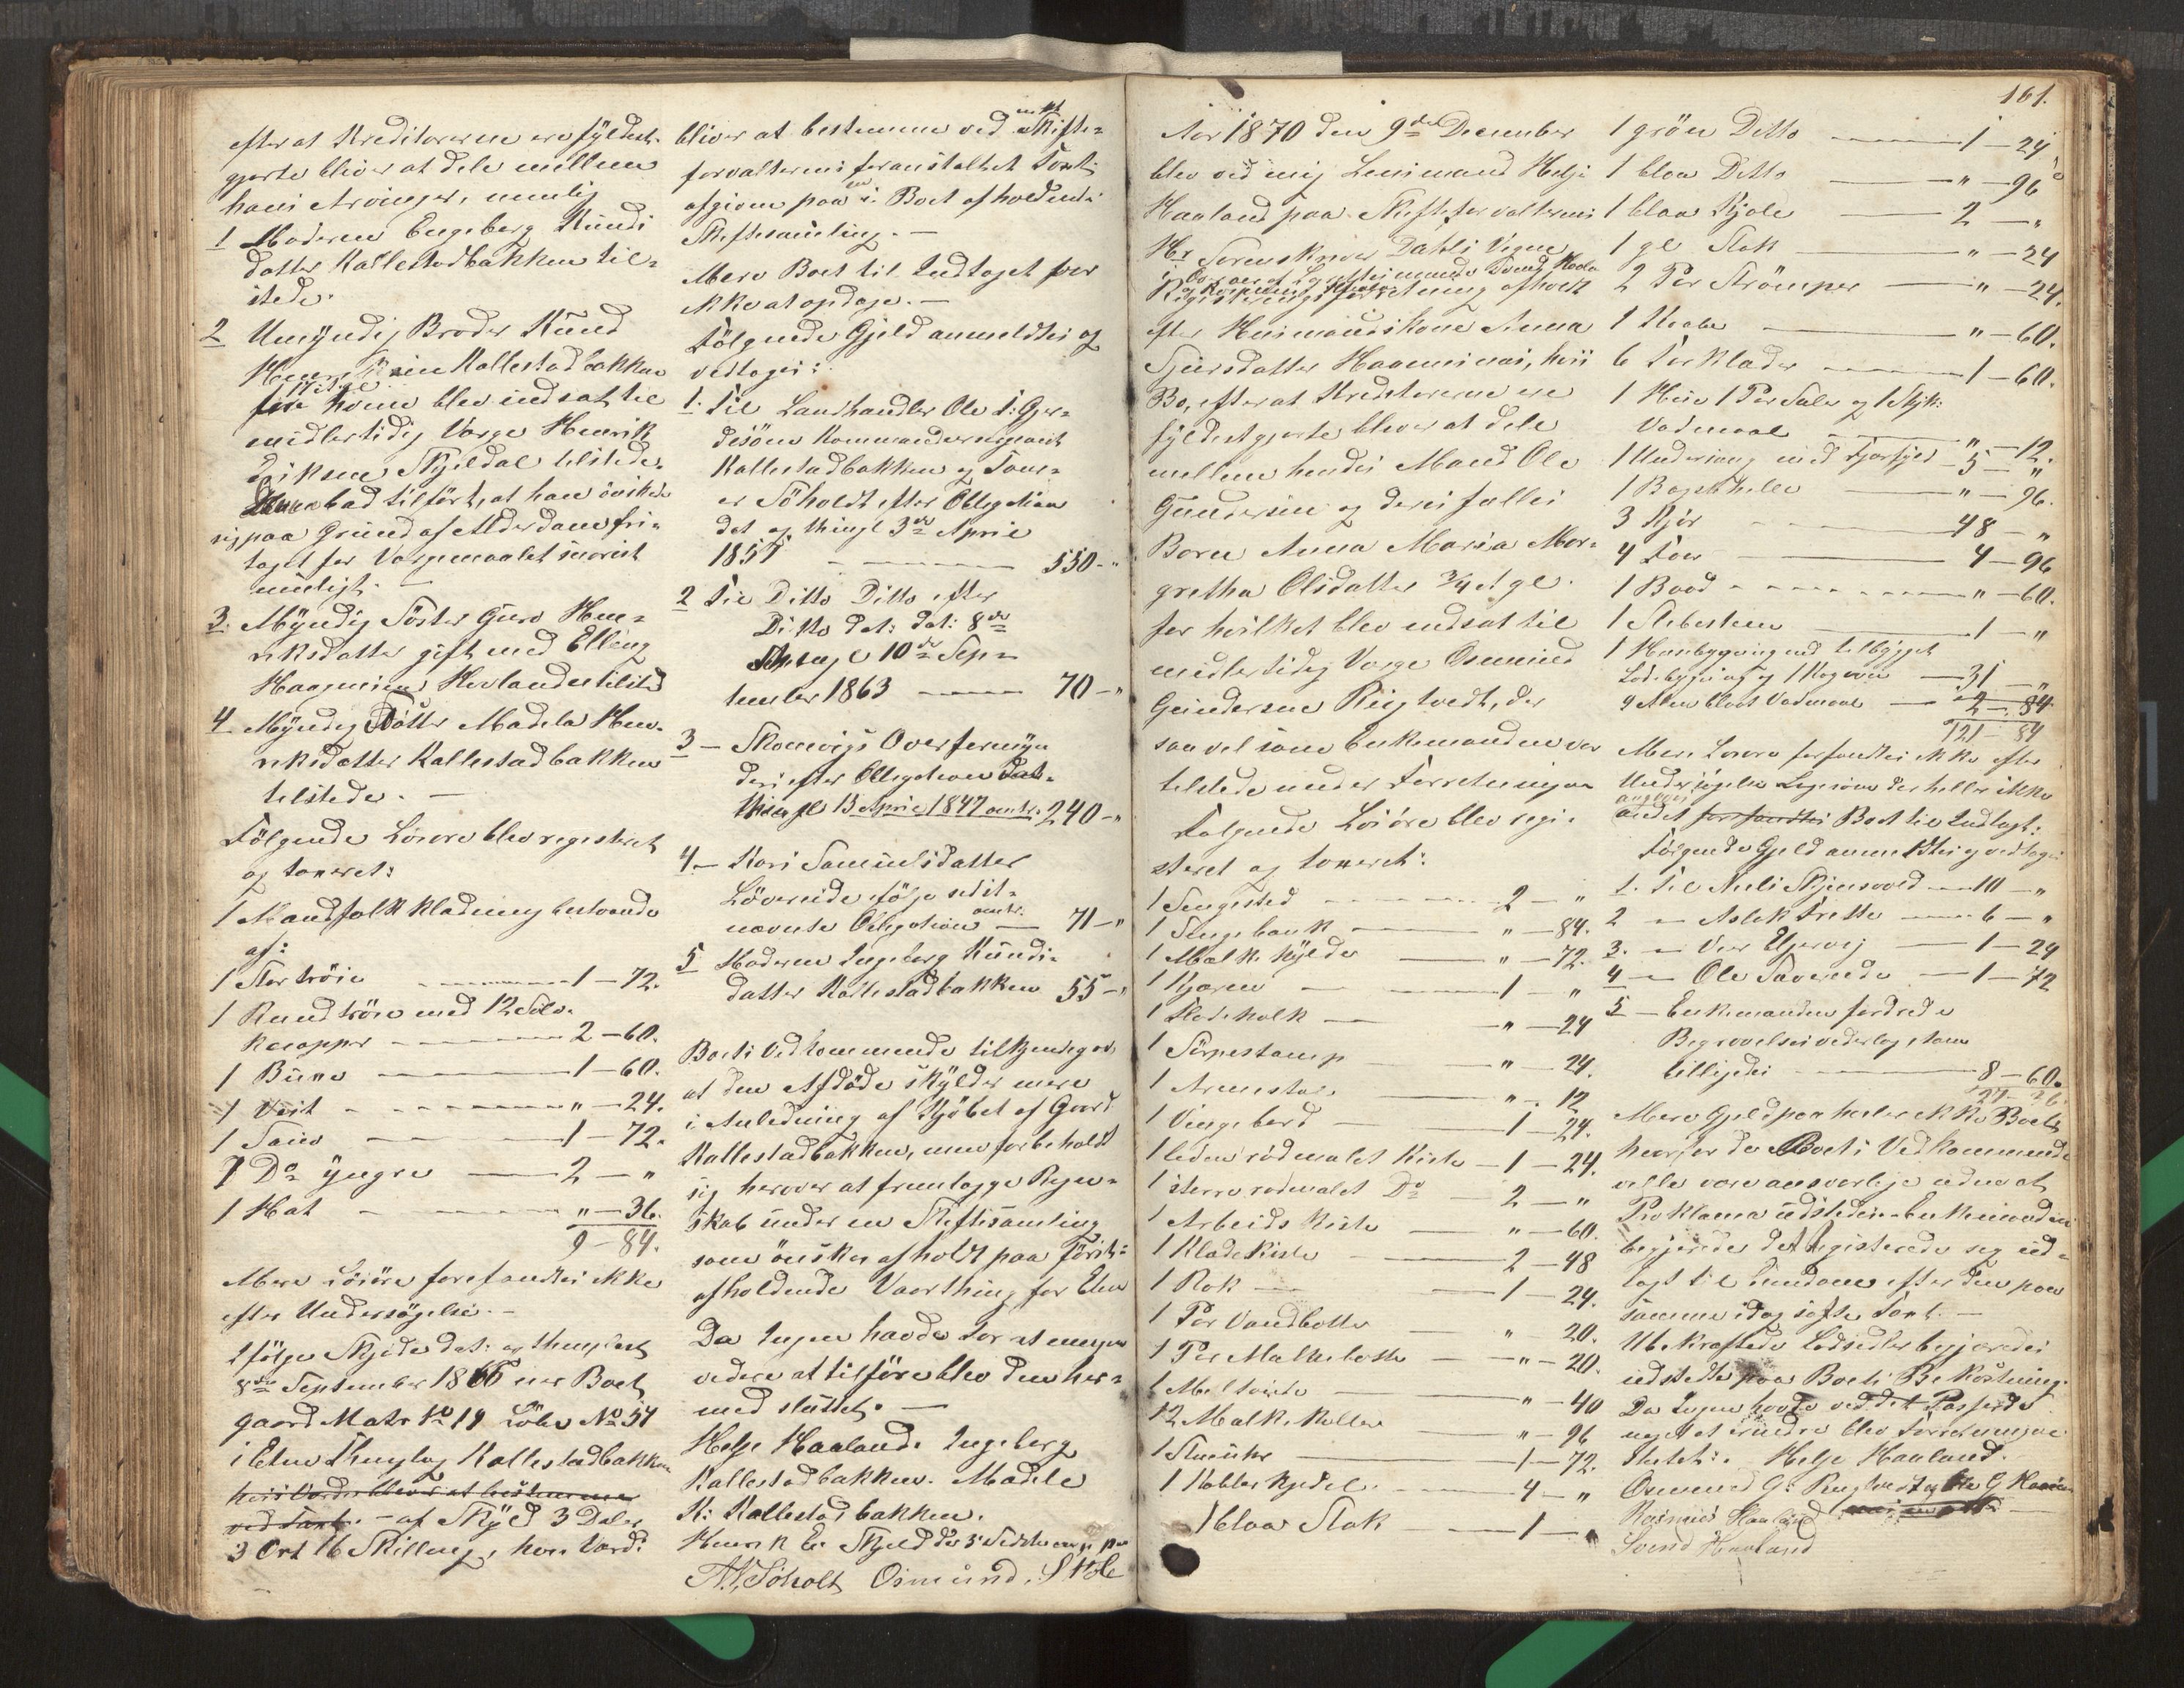 efter at Kreditorerne ere fyldest-
gjorte bliver at dele mellem
hans Arvinger, nemlig
1 Moderen Engeborg Knuds
datter Kallestadbakken til-
stede.
2 Umyndig Broder Knud
Henriksen Kallestadbakken
17 A: gl
for hvem blev indsat til
midlertidig Verge Henrik
Eriksen Skjeldal tilstede.
Denne bad tilført, at han önskede
sig paa Grund af Alderdom fri-
taget for Vergemaalet snarest
muligt. —
3. Myndig Söster Guro Hen-
riksdatter gift med Elling
Haagensen Hovland tilsted
4. Myndig Datter Madela Hen-
riksdatter Kallestadbakken
tilstede. —
Følgende Lösøre blev registeret
og taxeret:
1 Mandfolkklædning bestaaende
af:
1 Stortröie — 1 — 72.
1 Rundtröie med 12 Sölv-
knapper — 2 — 60.
1 Buxe — 1 — 60.
1 Vest — " — 24.
1 — 1 — 72.
1 Do yngre — 2 — "
1 Hat — " — 36.
9 — 84.
Mere Lösöre forefandtes ikke
efter Undersögelse. —
Ifölge Skjöde dat: og thinglæst
8de September 1866 eier Boet
gaard Matr No 19 Löbe No 54
i Etne Thinglag Kallestadbakken
hvis Værdi bliver at bestemme
ved Taxt. — af Skyld 3 Daler
3 Ort 16 Skilling, hvis Værdi
bliver at bestemme ved Skifte-
forvalterens foranstaltet Taxt
afgiven paa en i Boet afholdende
Skiftesamling. —
Mere Boet til Indtægt var
ikke at opdage. —
Følgende Gjeld anmeldtes og
vedtoges:
1. Til Landhandler Ole T: Gjer-
desöen Kommandersergeant
Kallestadbakken og
Söholdt efter Obligation
dat og thingl 3de April
1857 — 550 — "
2 Til Ditto Ditto efter
Ditto dat: 8de
thingl 10de Sep-
tember 1863 — 70 — "
3 — Skonevigs Overformyn
deri efter Obligation dat-
thingl 13 April 1847 omtr. 240 — "
4 — Kari Samuelsdatter
Lövereide ifölge sidst-
nævnte Obligation omtr. — 71 — "
5 Moderen Ingeborg Knuds-
datter Kallestadbakken 55 — "
Boets Vedkommende tilkjendegav,
at den Afdöde skylder mere
i Anledning af Kjöbet af Gaard
Kallestadbakken, men forbeholdt
sig herover at fremlægge Regn-
skab under en Skiftesamling
som önskes afholdt paa förste
afholdende Vaarthing for Etne
Da Ingen havde for at
videre at tilföre blev den her-
med sluttet. —
Helje Haaland. Ingeborg
Kallestadbakken. Madele
H: Kallestadbakken.
Henrik E. Skjeldal
Söholt Osmund Stöle
161.
Aar 1870 den 9de December
blev ved mig Lensmand Helje
Haaland paa Skifteforvalterens
Hr Sorenskriver Dahls Vegne
i Overvær af Laugrettesmændene Svend Haaland
og Rasmus Haaland
Registreringsforretning afholdt
efter Husmandskone Anna
Sjursdatter Haaneimnes, hvis
Bo, efter at Kreditorerne ere
fyldestgjorte bliver at dele
mellem hendes Mand Ole
Gundersen og deres fælles
Barn Anna Maria Mar-
gretha Olsdatter 3/4 A: gl.
for hvilket blev indsat til
midlertidig Verge Osmund
Gundersen Ringtvedt, der
saavel som Enkemanden var
tilstede under Forretningen
Følgende Lösöre blev regi-
streret og taxeret:
1 Sengested — 2 — "
1 Sengebænk — " — 84.
1 Mælkehylde — " — 72.
1 Kjærne — 1 — "
1 Flödeholk — " — 24
1 Surpestamp — " — 24.
1 Armstol — " — 12
1 Vingebord — 1 — 24.
1 liden rödmalet Kiste — 1 — 24.
1 större rödmalet Do — 2 — "
1 Arbeids Kiste — " — 60.
1 Klædekiste — 2 — 48
1 Rok — 1 — 24.
1 Par Vandbötter — " 20.
1 Par Mælkebötter — " — 20.
1 — " — 40
12 Mælkekoller — " — 96
1 Stueuhr — 1 — 72.
1 Kobberkjedel — 4 — "
1 blaa Stak — 1 — "
1 grön Ditto — 1 — 24
1 blaa Ditto — " — 96
1 blaa Kjole — 2 — "
1 gl Stak — " — 24
2 Par Strömper — " — 24.
1 Kaabe — " — 60.
6 Törklæder — 1 — 60.
1 Hue 1 Par Saler og 1 Stk:
Vadmael — " — 12.
1 Underseng med — 5 — "
1 Bagsthelle — " — 96.
3 Kjör — 48 — "
4 Faar — 4 — 96
1 Baad — " — 60.
1 Slibesteen — 1 — "
1 Huusbygning med tilbygget
Lödebygning og 1 Kogovn — 31 — "
9 Alen blaat Vadmael — 2 — 84.
121 — 84
Mere Lösöre forfandtes ikke efter
Undersögelse ligesom der heller ikke
angaves
andet forfandtes Boet til Indtægt:
Følgende Gjeld anmeldtes og vedtoges
1. Til Nils — 10 — "
2 — Aslak Trette — 6 — "
3. — — 1 — 24
4 — Ole — 1 — 72
5 — Enkemanden fordrede
Begravelsesvederlag, som
billigedes — 8 — 60.
27 — 36.
Mere Gjeld paahviler ikke Boet
hvorfor Boets Vedkommende
ville være ansvarlige uden at
Proklama udstedes. Enkemanden
begjerede det Registrerede sig ud-
lagt til Eiendom efter den paa
samme idag satte Taxt. —
Ubekræftede Lodsedler begjæredes
udstedte paa Boets Bekostning.
Da Ingen havde ved det Passerede
noget at erindre blev Forretningen
sluttet: Helje Haaland.
Osmund G: Ringtvedt Ole G
Rasmus Haaland
Svend Haaland